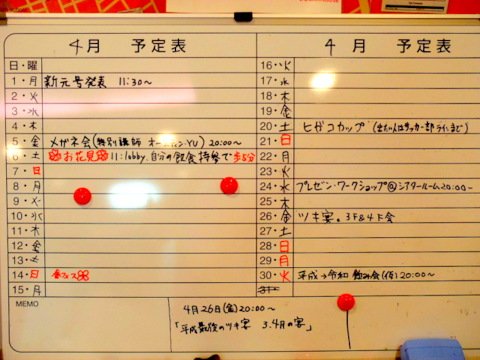 4月 予定表
日・曜
1・月 新元号発表 11:30〜
2・火
3・水
4・木
5・金 メガネ会(特別講師 オールバンYU) 20:00〜
6・土 お花見 11:lobby.自分の飲食持参で 歩5分
7・日
8・月
9・火
10・水
11・木
12・金
13・土
14・日 春フェス
15・月
4月 予定表
16・火
17・水
18・木
19・金
20・土 ヒガコカップ
21・日
22・月
23・火
24・水 プレゼン・ワークショップ@シアタールーム20:00〜
25・木
26・金 ツキ宴。3F&4F会
27・土
28・日
29・月
30・火 平成→令和 飲み会(仮)20:00〜
31
MEMO
4月26日(金)20:00〜
「平成最後のツキ宴 3.4月の宴」